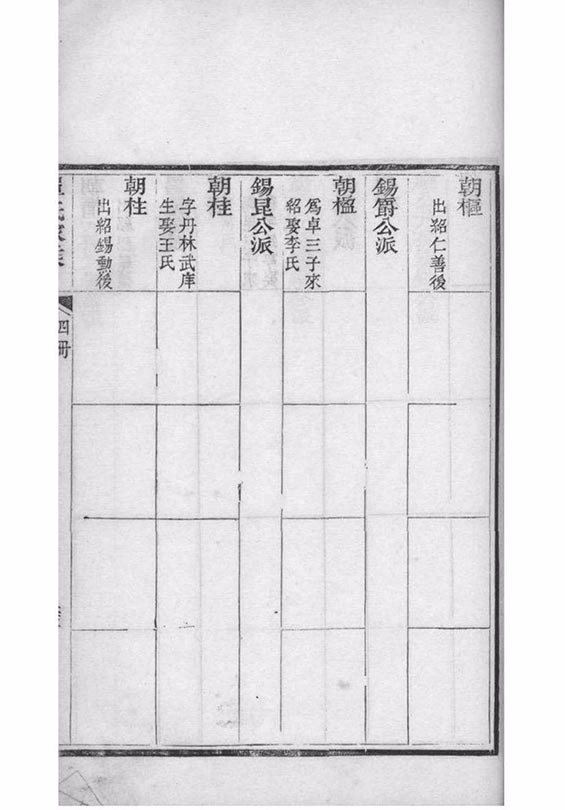 朝樞
出紹仁善後
錫爵公派
朝楹
爲卓三子來
紹娶李氏
錫昆公派
朝桂
字丹林武庠
生娶王氏
朝柱
出紹錫勳後
四冊